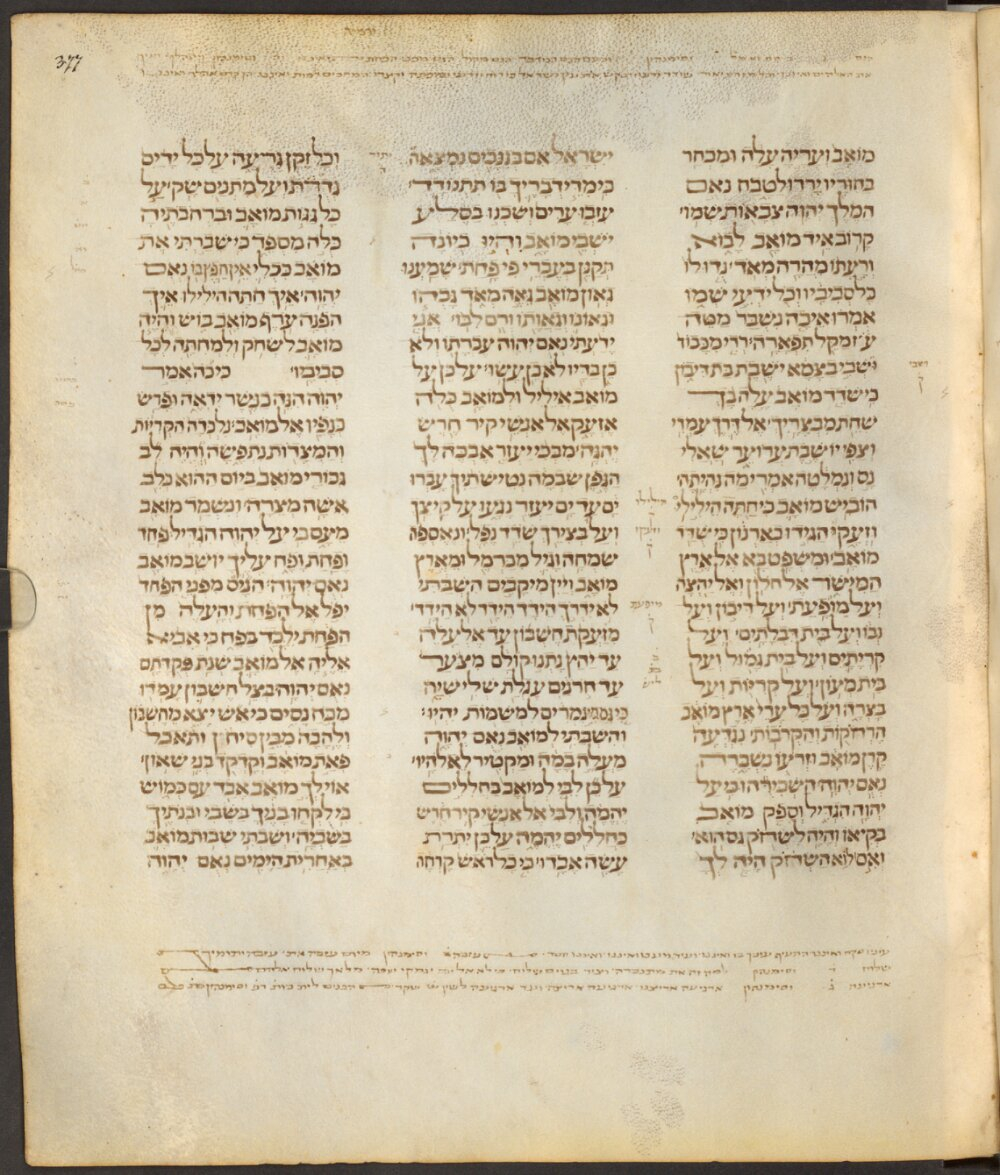 377
ירמיה
מואב ועריה עלה ומבחר
בחוריו ירדו לטבח נאם
המלך יהוה צבאות שמו׃
קרוב איד מואב לבוא
ורעתו מהרה מאד׃ נדו לו
כל סביביו וכל ידעי שמו
אמרו איכה נשבר מטה
עז מקל תפארה׃ רדי מכבוד
ישבי בצמא ישבת בת דיבון
כי שדד מואב עלה בך
שחת מבצריך׃ אל דרך עמדי
וצפי יושבת ערוער שאלי
נס ונמלטה אמרי מה נהיתה׃
הוביש מואב כי חתה הילילי
וזעקי הגידו בארנון כי שדד
מואב׃ ומשפט בא אל ארץ
המישור אל חלון ואל יהצה
ועל מופעת׃ ועל דיבון ועל
נבו ועל בית דבלתים׃ ועל
קריתים ועל בית גמול ועל
בית מעון׃ ועל קריות ועל
בצרה ועל כל ערי ארץ מואב
הרחקות והקרבות׃ נגדעה
קרן מואב וזרעו נשברה
נאם יהוה׃ השכירהו כי על
יהוה הגדיל וספק מואב
בקיאו והיה לשחק גם הוא׃
ואם לוא השחק היה לך
ישראל אם בגנבים נמצאה
כי מדי דבריך בו תתנודד׃
עזבו ערים ושכנו בסלע
ישבי מואב והיו כיונה
תקנן בעברי פי פחת׃ שמענו
גאון מואב גאה מאד גבהו
וגאונו וגאותו ורם לבו׃ אני
ידעתי נאם יהוה עברתו ולא
כן בדיו לא כן עשו׃ על כן על
מואב איליל ולמואב כלה
אזעק אל אנשי קיר חרש
יהגה׃ מבכי יעזר אבכה לך
הגפן שבמה נטישתיך עברו
ים עד ים יעזר נגעו על קיצך
ועל בצירך שדד נפל׃ ונאספה
שמחה וגיל מכרמל ומארץ
מואב ויין מיקבים השבתי
לא ידרך הידד הידד לא הידד׃
מזעקת חשבון עד אלעלה
עד יהץ נתנו קולם מצער
עד חרנים עגלת שלישיה
כי גם מי נמרים למשמות יהיו׃
והשבתי למואב נאם יהוה
מעלה במה ומקטיר לאלהיו׃
על כן לבי למואב כחללים
יהמה ולבי אל אנשי קיר חרש
כחללים יהמה על כן יתרת
עשה אבדו׃ כי כל ראש קרחה
וכל זקן גרעה על כל ידים
גדדת ועל מתנים שק׃ על
כל גגות מואב וברחבתיה
כלה מספד כי שברתי את
מואב ככלי אין חפץ בו נאם
יהוה׃ איך חתה הילילו איך
הפנה ערף מואב בוש והיה
מואב לשחק ולמחתה לכל
סביביו׃ כי כה אמר
יהוה הנה כנשר ידאה ופרש
כנפיו אל מואב׃ נלכדה הקריות
והמצדות נתפשה והיה לב
גבורי מואב ביום ההוא כלב
אשה מצרה׃ ונשמד מואב
מעם כי על יהוה הגדיל׃ פחד
ופחת ופח עליך יושב מואב
נאם יהוה׃ הניס מפני הפחד
יפל אל הפחת והעלה מן
הפחת ילכד בפח כי אביא
אליה אל מואב שנת פקדתם
נאם יהוה׃ בצל חשבון עמדו
מכח נסים כי אש יצא מחשבון
ולהבה מבין סיחון ותאכל
פאת מואב וקדקד בני שאון׃
אוי לך מואב אבד עם כמוש
כי לקחו בניך בשבי ובנתיך
בשביה׃ ושבתי שבות מואב
באחרית הימים נאם יהוה